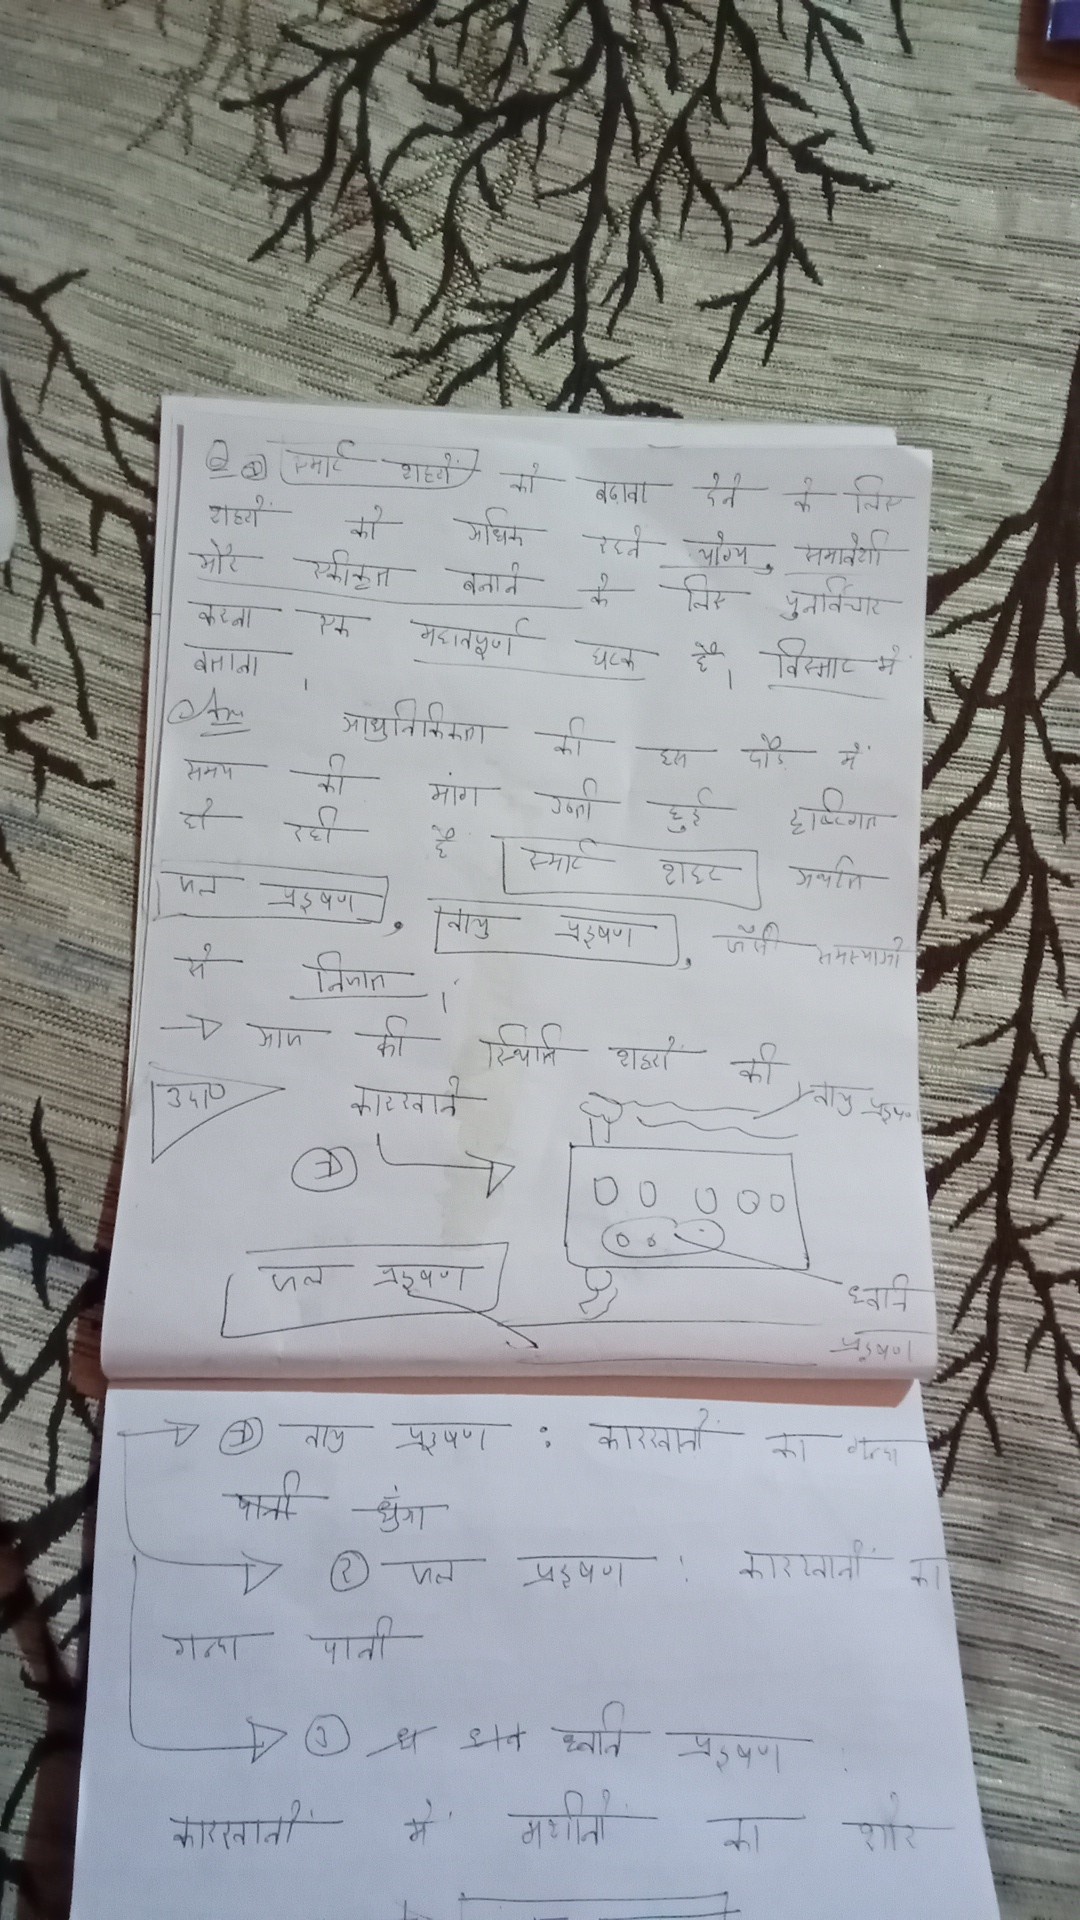 Q ① स्मार्ट शहरों को बढ़ावा देने के लिए
शहरों को अधिक रहने योग्य, समावेशी
और बनाने के लिए पुनर्विचार
करना एक महत्वपूर्ण घटक है। विस्तार में
बताना।
Ans आधुनिकिकरण की इस दौड़ में
समय की मांग उठती हुई दृष्टिगत
हो रही है स्मार्ट शहर अर्थात
जल प्रदूषण, वायु प्रदूषण, जैसी समस्याओं
से निजात।
→ आज की स्थिति शहरों की
उदा० कारखाने वायु प्रदूषण
①
जल प्रदूषण
ध्वनि
प्रदूषण
→ ① वायु प्रदूषण : कारखानों का गन्दा
पानी धुंआ
→ ② जल प्रदूषण : कारखानों का
गन्दा पानी
→ ③ ध्वनि प्रदूषण :
कारखानों में मशीनों का शोर